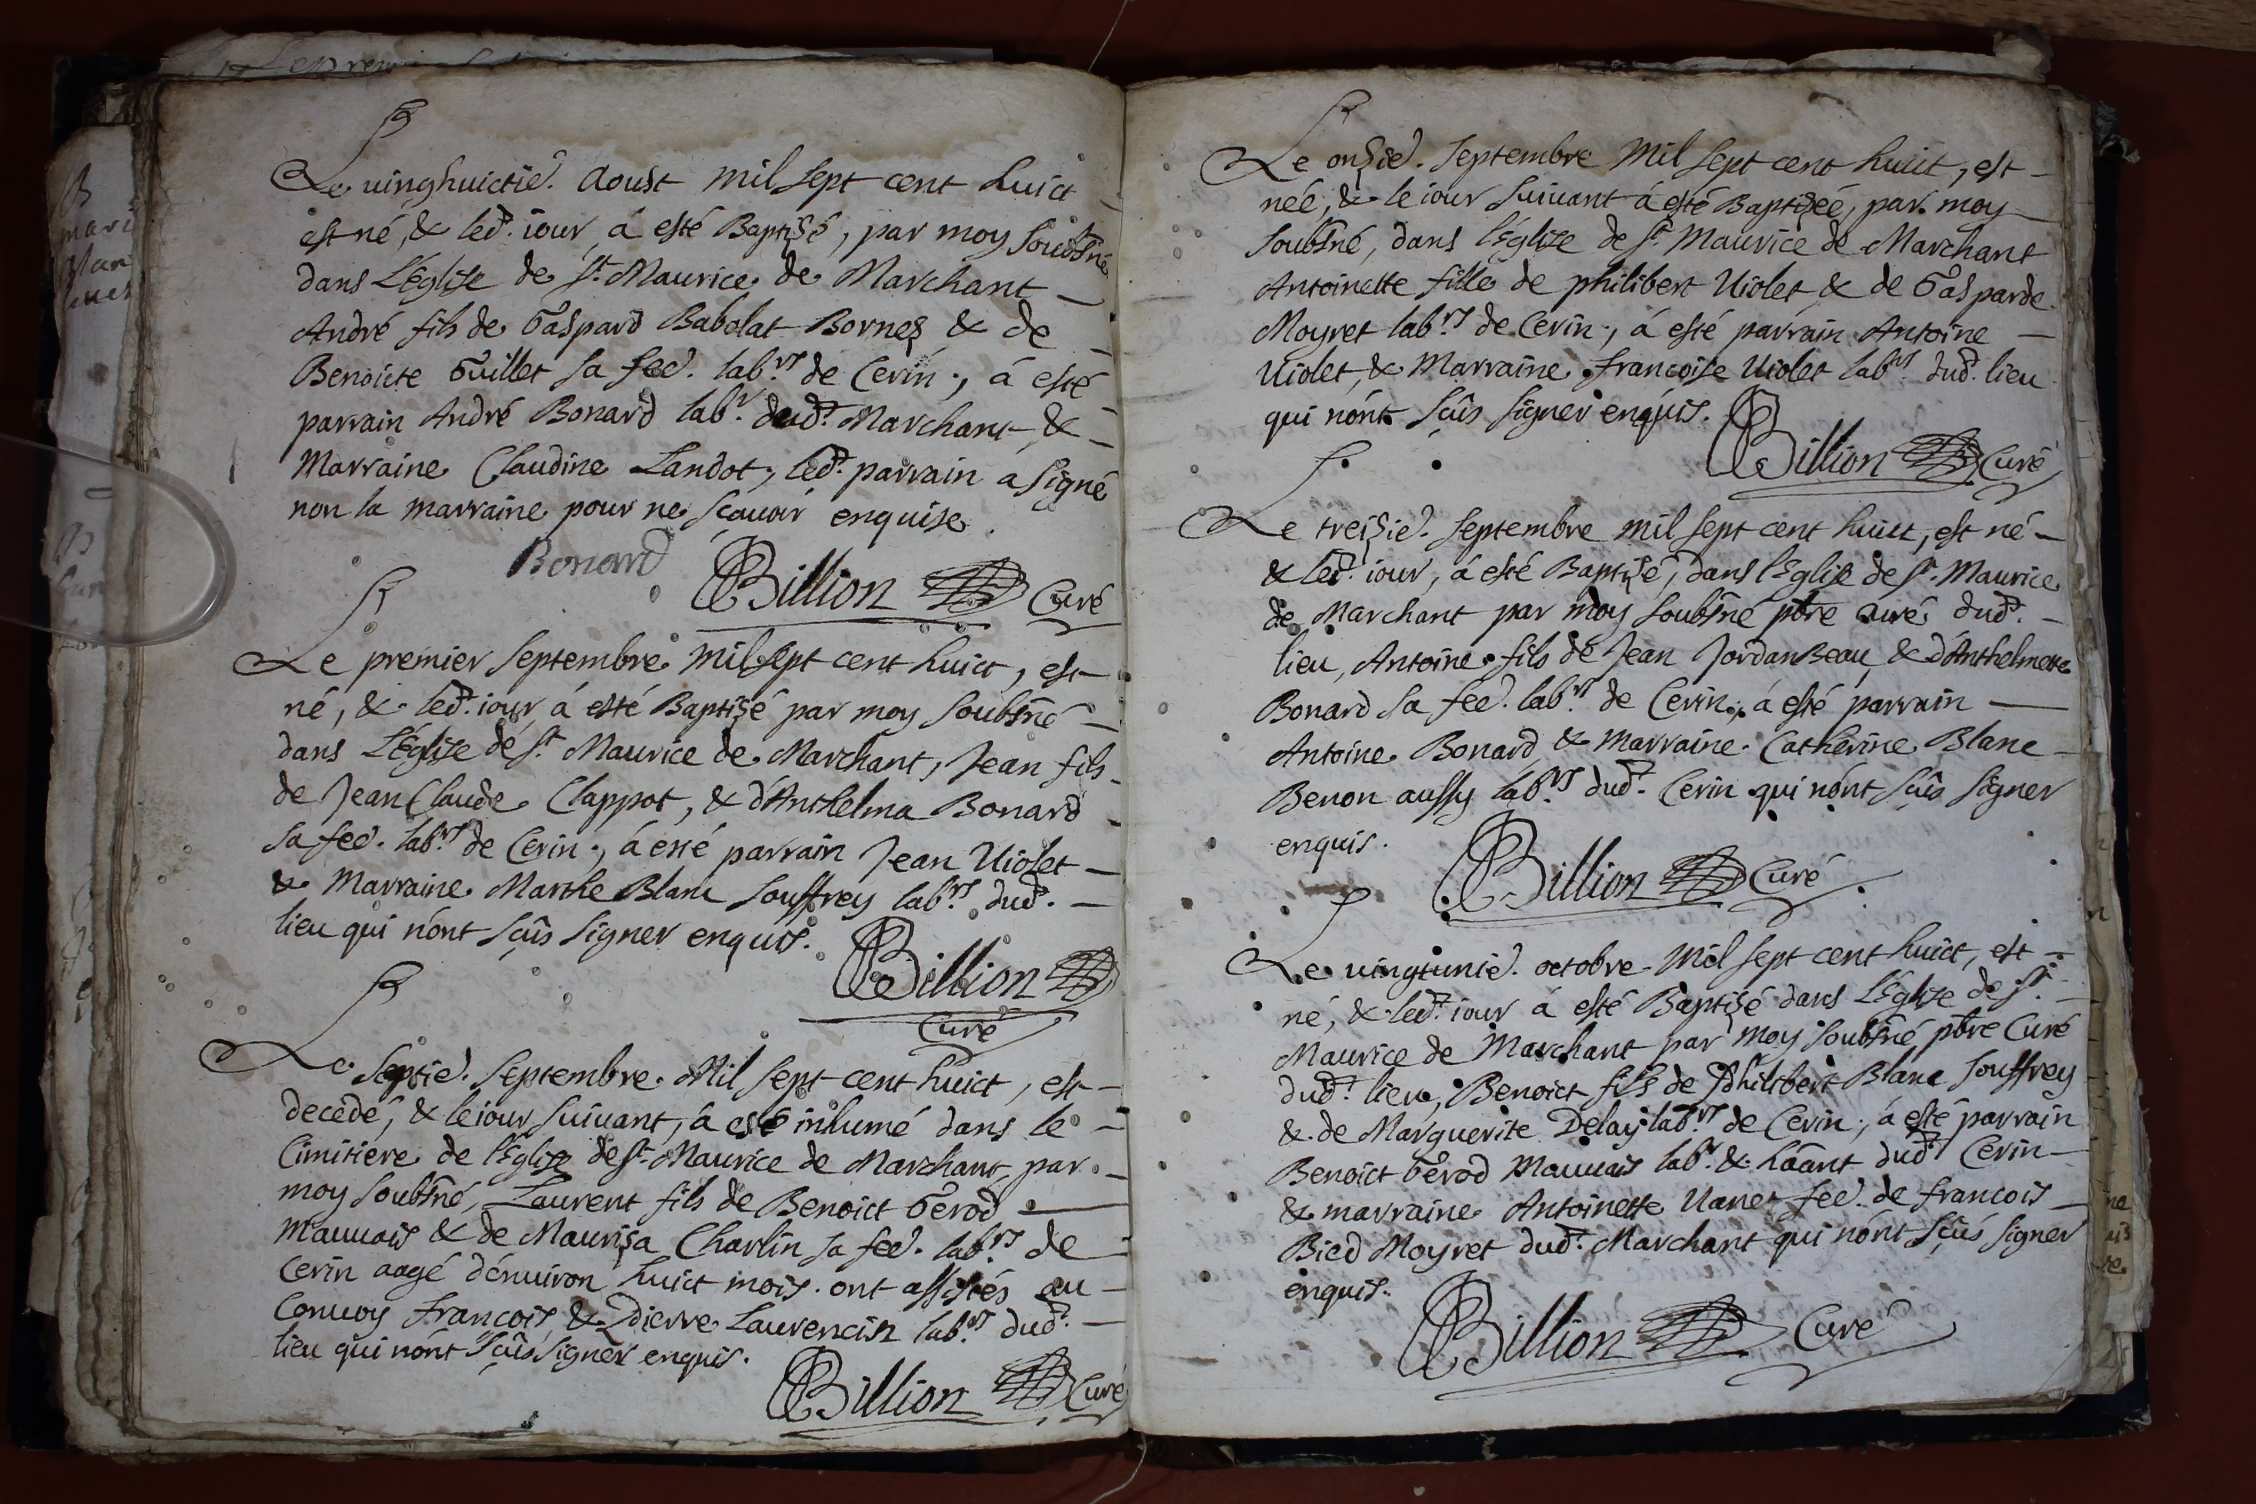 Le vinghuictie. Aoust mil sept cent huict
est né, & led. iour á esté Baptizé, par moy soubsné
dans L'Eglise de St. Maurice de Marchant
André fils de Gaspard Babolat Bornes & de
Benoicte Guillet sa fee. lab.rs de Cerin, á esté
parrain André Bonard lab.r dud. Marchant &
Marraine Claudine Landot, led. parrain a signé
non la marraine pour ne scauoir enquise.
Bonard Billion Curé
Le premier septembre mil sept cent huict, est
né, & led. iour á esté Baptizé par moy soubsné
dans L'Eglise de St. Maurice de Marchant, Jean fils
de Jean Claude Clappot, & d'Anthelma Bonard
sa fee. lab.rs de Cerin, á esté parrain Jean Uiolet
& Marraine Marthe Blanc Souffrey lab.rs dud.
lieu qui n'ont sçûs signer enquis.
Billion
Curé
Le septie. septembre Mil sept cent huict, est
decedé, & le iour suiuant, á esté inhumé dans le
Cimitiere de l'Eglise de St. Maurice de Marchant, par
moy soubsné, Laurent fils de Benoict Gerod
Mauuais & de Mauriza Charlin sa fee. lab.rs de
Cerin aagé d'enuiron huict mois. ont assistés au
Conuoy francois & Pierre Laurencin lab.rs dud.
lieu qui n'ont sçûs signer enquis.
Billion Curé
Le onzie. septembre mil sept cent huict, est
néé, & le iour suiuant á esté Baptizéé, par moy
soubsné, dans l'Eglise de St. Maurice de Marchant
Antoinette fille de philibert Uiolet & de Gasparde
Moyret lab.rs de Cerin, á esté parrain Antoine
Uiolet, & Marraine francoise Uiolet lab.rs dud. lieu
qui n'ont sçûs signer enquis.
Billion Curé
Le treizie. septembre mil sept cent huict, est né
& led. iour, á esté Baptizé, dans l'Eglise de St. Maurice
de Marchant par moy soubsné pbre curé dud.
lieu, Antoine fils de Jean Jordan Beau & d'Anthelmette
Bonard sa fee. lab.rs de Cerin, á esté parrain
Antoine Bonard & marraine Catherine Blanc
Benon aussy lab.rs dud. Cerin qui n'ont sçûs signer
enquis.
Billion Curé
Le vingtunie. octobre Mil sept cent huict, est
né, & led. iour á esté Baptizé dans L'Eglise de St.
Maurice de Marchant par moy soubsné pbre Curé
dud. lieu, Benoict fils de Philibert Blanc Souffrey
& de Marguerite Delay lab.rs de Cerin, á esté parrain
Benoict Gerod Mauuais lab.r & háânt dud. Cerin
& marraine Antoinette Uanet fee. de francois
Bied Moyret dud. Marchant qui n'ont sçûs signer
enquis.
Billion Curé